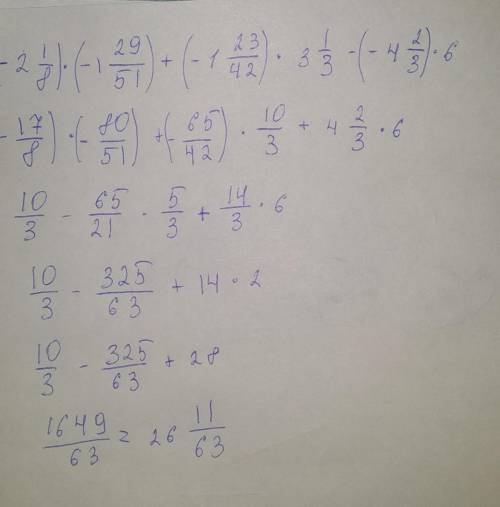 - 2 1/8) · (-1 29/51) + (-1 23/42) · 3 1/3 - (-4 2/3) · 6
- 17/8) · (- 80/51) + (- 65/42) · 10/3 + 4 2/3 · 6
10/3 - 65/21 · 5/3 + 14/3 · 6
10/3 - 325/63 + 14 · 2
10/3 - 325/63 + 28
1649/63 = 26 11/63